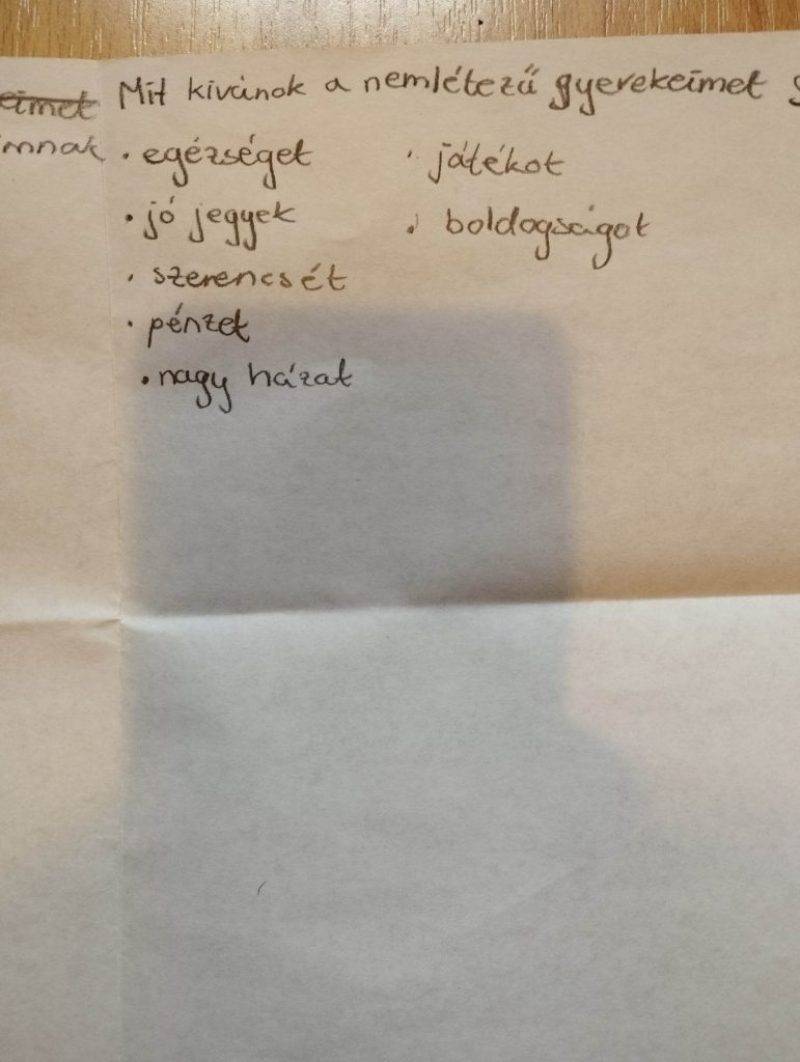 eimet Mit kívánok a nemlétező gyerekeimet
mnak
• egézséget
• jó jegyek
• szerencsét
• pénzet
• nagy házat
• játékot
• boldogságot